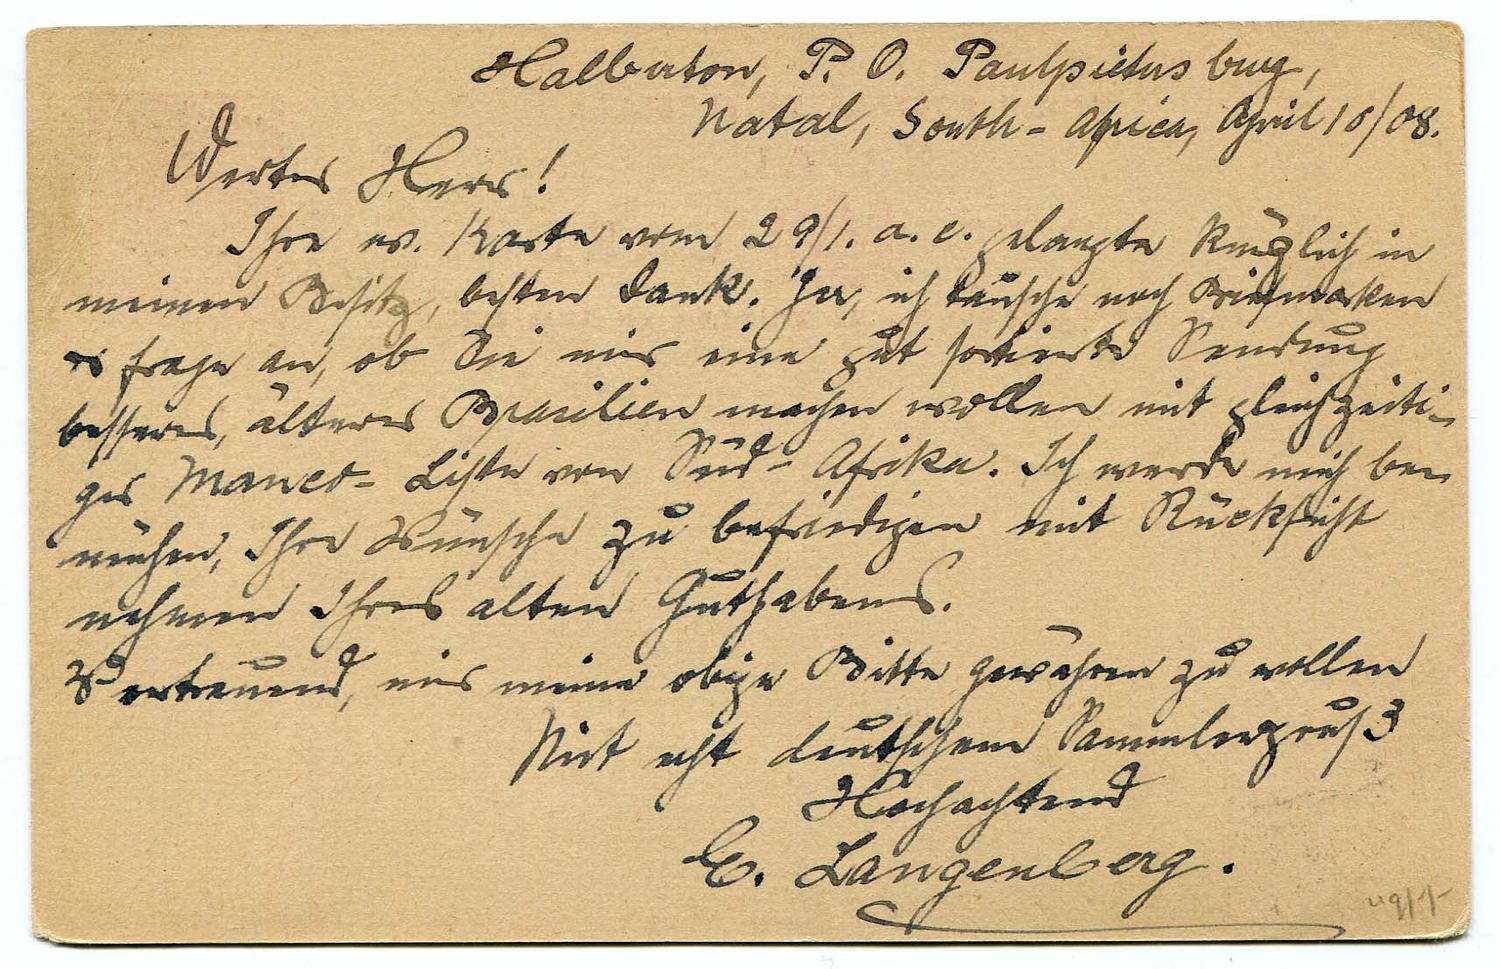 Halberton, P. O. Paulpietersburg,
Natal, South-Africa, April 16/08.
Werter Herr!
Ihre w. Karte vom 29/1. a. c. gelangte kürzlich in
meinen Besitz, besten Dank. Ja, ich tausche noch Briefmarken
& frage an, ob Sie mir eine gut sortierte Sendung
besseres, älteres Brasilien machen wollen mit gleichzeiti-
ger Manco-Liste von Süd-Afrika. Ich werde mich be-
mühen, Ihre Wünsche zu befriedigen mit Rücksicht
nehmen Ihres alten Guthabens.
Vertrauend, mir meine obige Bitte gewähren zu wollen
Mit echt deutschem Sammlergruß
Hochachtend
E. Langenberg.